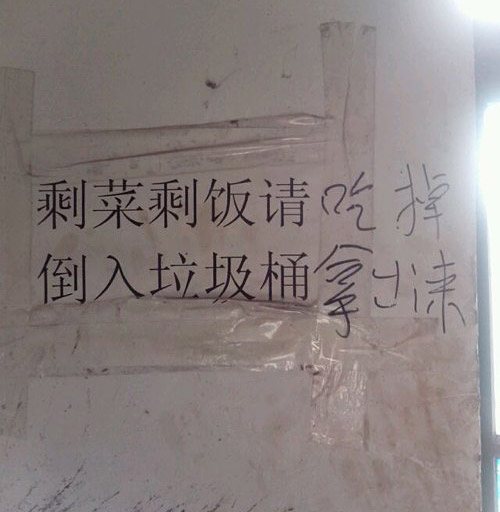 剩菜剩饭请吃掉
倒入垃圾桶拿出来